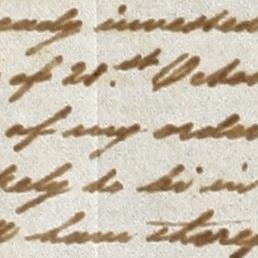 eady invested
of 21.st Octo
of my order
kely to be in
have